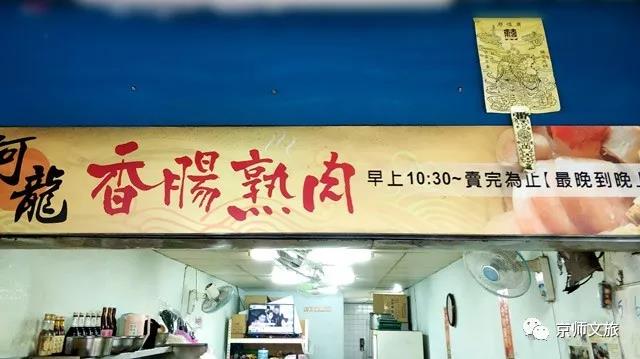 阿龍 香腸熟肉 早上10:30~賣完為止【最晚到晚上
京师文旅